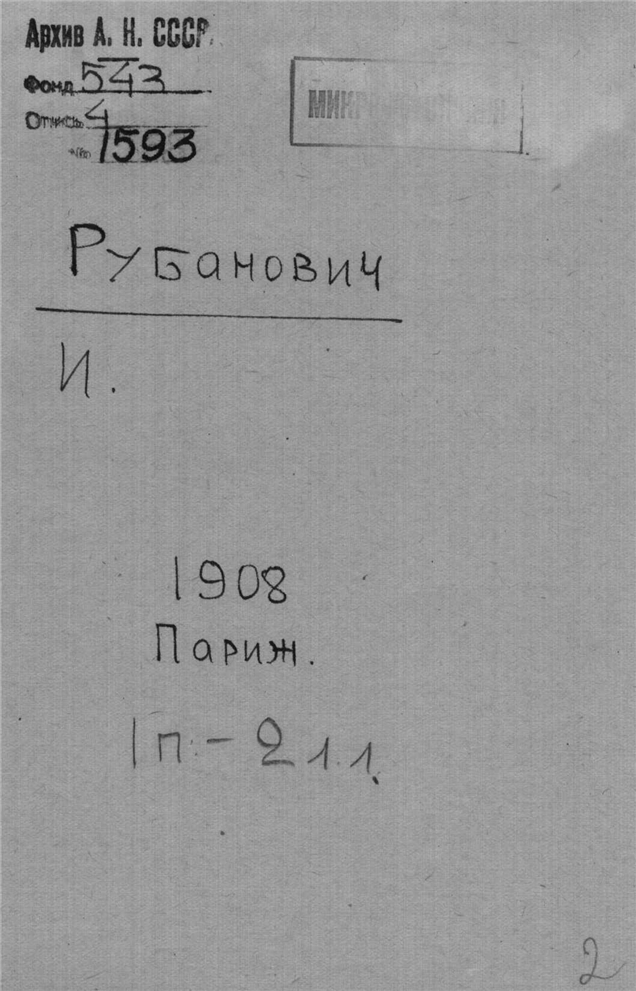 Архив А. Н. СССР.
Фонд 543
Опись 4
№ 1593
Рубанович
И.
1908
Париж.
1п. - 2 л.л.
2